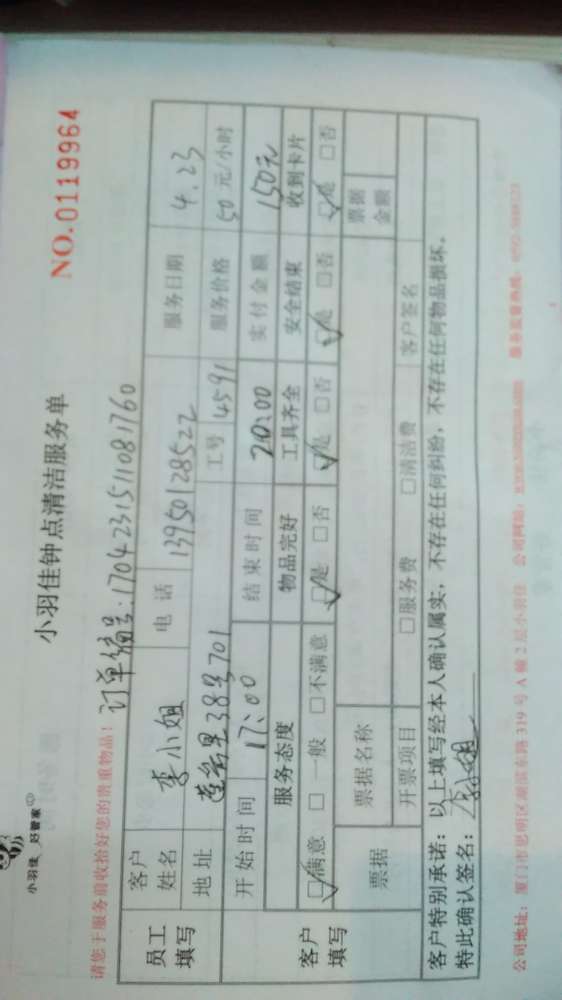 小羽佳 好管家
小羽佳钟点清洁服务单
NO.01199​64
请您于服务前收拾好您的贵重物品!
订单编号:170423151108​1760
员工填写
客户姓名 李小姐 电话 13950128522 服务日期 4.23
地址 莲岳里38号701 工号 4591 服务价格 50元/小时
客户填写
开始时间 17:00 结束时间 20:00 实付金额 150元
服务态度 物品完好 工具齐全 安全结束 收到卡片
☑满意 □一般 □不满意 ☑是 □否 ☑是 □否 ☑是 □否 ☑是 □否
票据 票据名称 票据金额
开票项目 □服务费 □清洁费 客户签名
客户特别承诺:以上填写经本人确认属实,不存在任何纠纷,不存在任何物品损坏。
特此确认签名:李小姐
公司地址:厦门市思明区湖滨东路319号A幢2层小羽佳 公司网站: 服务监督热线: